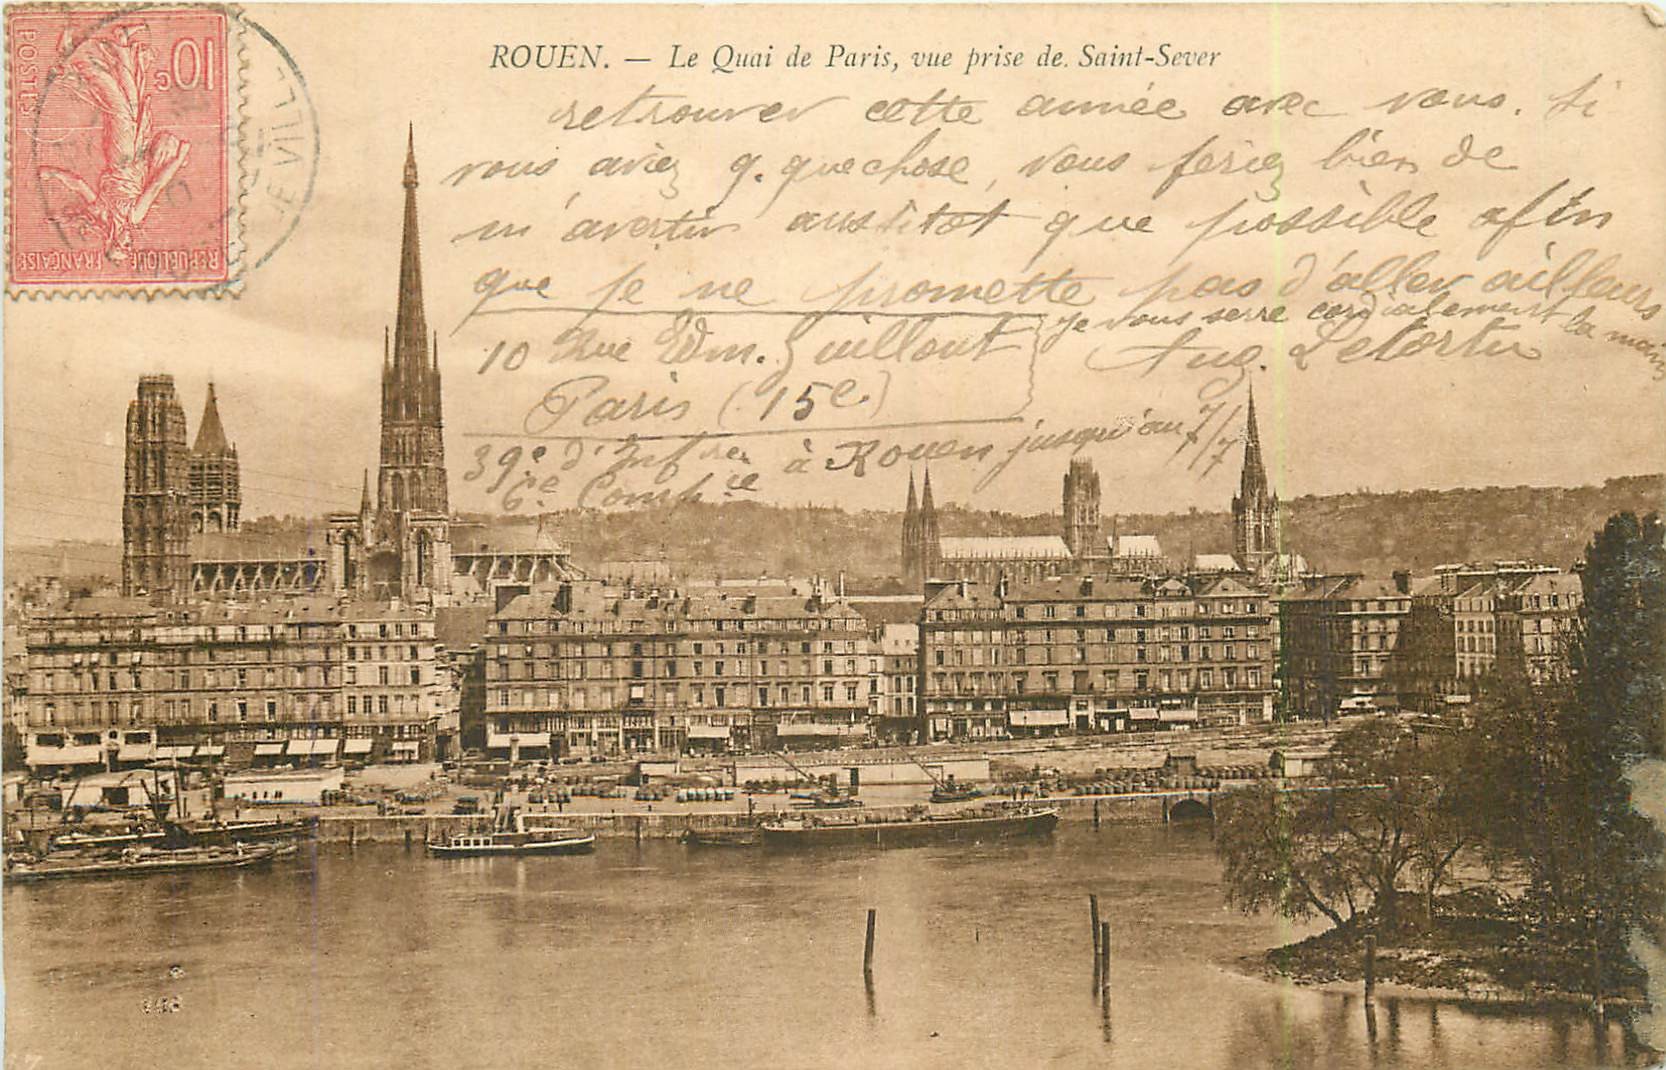 ROUEN. — Le Quai de Paris, vue prise de Saint-Sever
retrouver cette année avec vous. Si
vous aviez q. que chose, vous feriez bien de
m'avertir aussitôt que possible afin
que je ne promette pas d'aller ailleurs
Je vous serre cordialement la main
Aug. Letortu
10 Rue Edm. Guillout
Paris (15e)
39e d'Infrie à Rouen jusqu'au 7/7
6e Compie
10c
POSTES
REPUBLIQUE FRANÇAISE